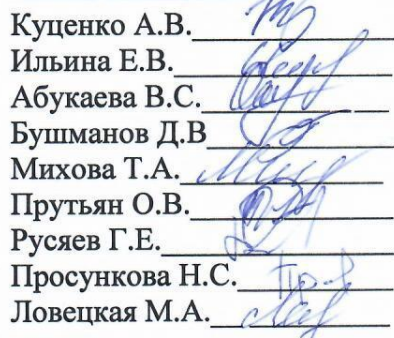 Куценко А.В.
Ильина Е.В.
Абукаева В.С.
Бушманов Д.В
Михова Т.А.
Прутьян О.В.
Русяев Г.Е.
Просункова Н.С.
Ловецкая М.А.